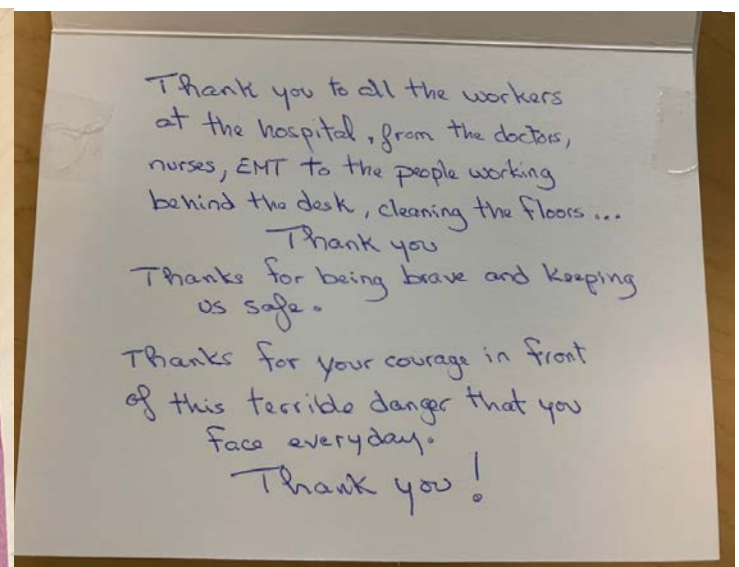 Thank you to all the workers
at the hospital, from the doctors,
nurses, EMT to the people working
behind the desk, cleaning the floors...
Thank you
Thanks for being brave and keeping
us safe.
Thanks for your courage in front
of this terrible danger that you
face everyday.
Thank you!